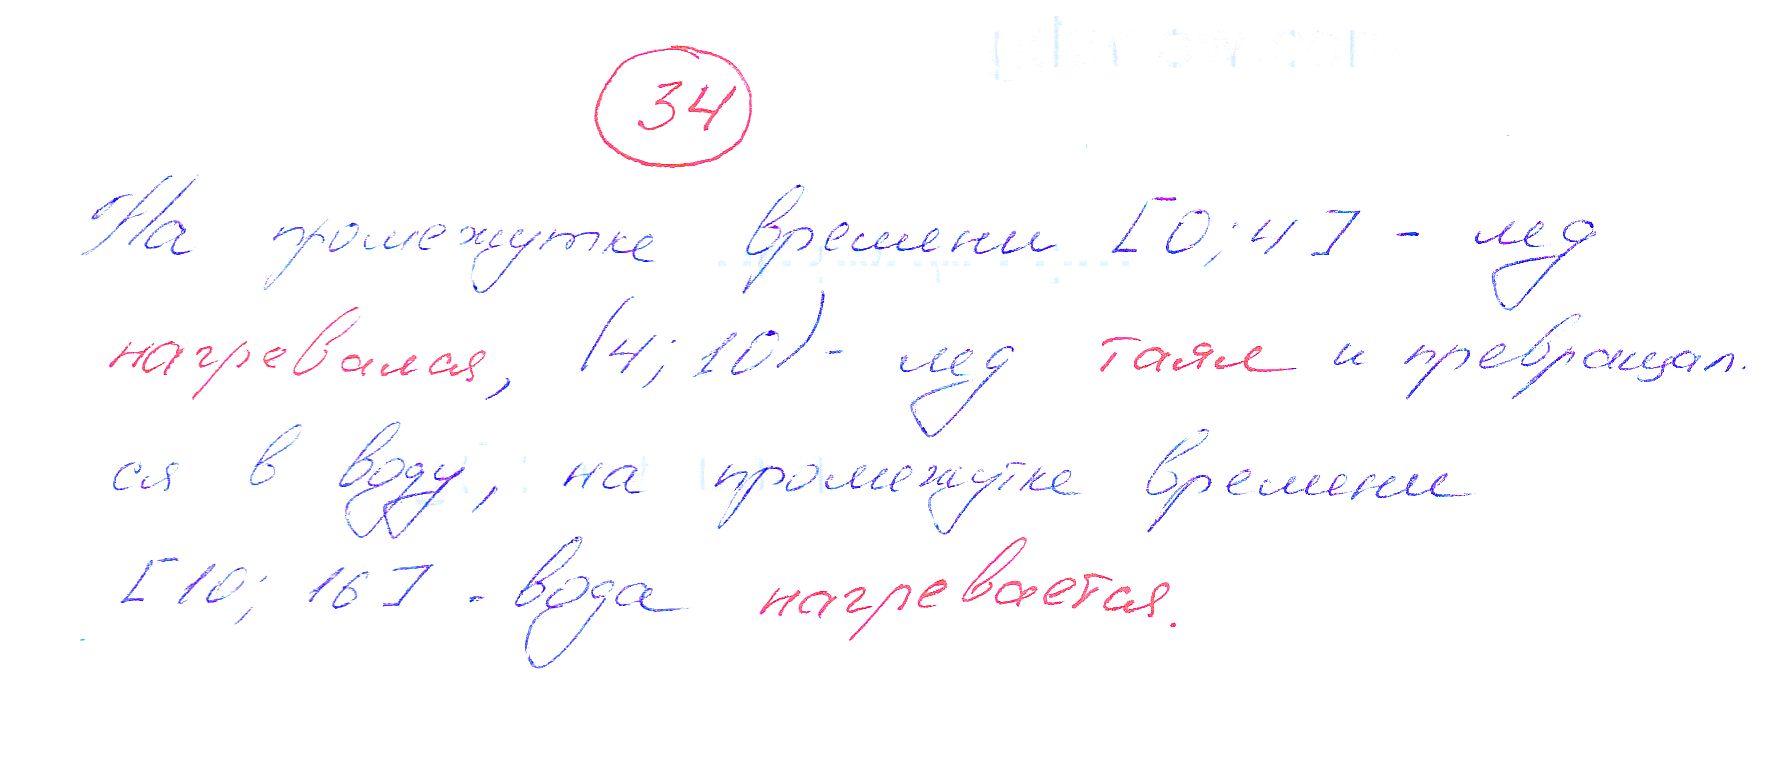 34
На промежутке времени [0;4] - лед
нагревался, (4; 10) - лед таял и превращал.
ся в воду, на промежутке времени
[10; 16] - вода нагревается.